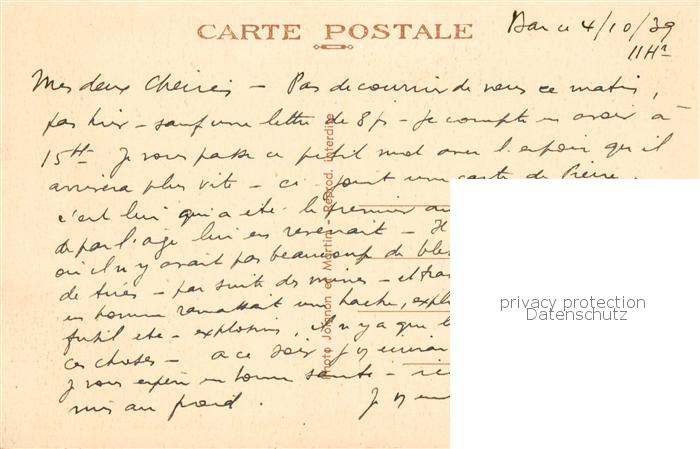 CARTE POSTALE
Bar le 4/10/39
11Hr
Mes deux Cheries - Pas de courrier de vous ce matin,
pas hier - sauf une lettre de 8 p - Je compte en avoir à
15H Je vous passe ce petit mot avec l'espoir qu'il
arrivera plus vite - ci joint une carte de Pierre.
c'est lui qui a été le premier
de par l'age lui en revenait - Il
où il n'y avait pas beaucoup de bles
de tués - par suite des mines - et
un homme ramassait une hache, explo
fusil etc - explosion, il n'y a que
ces choses - a ce soir j'y
Je vous espère en bonne santé -
mis au froid. J
Photo Joignon et Martin - Reprod. interdite
privacy protection
Datenschutz